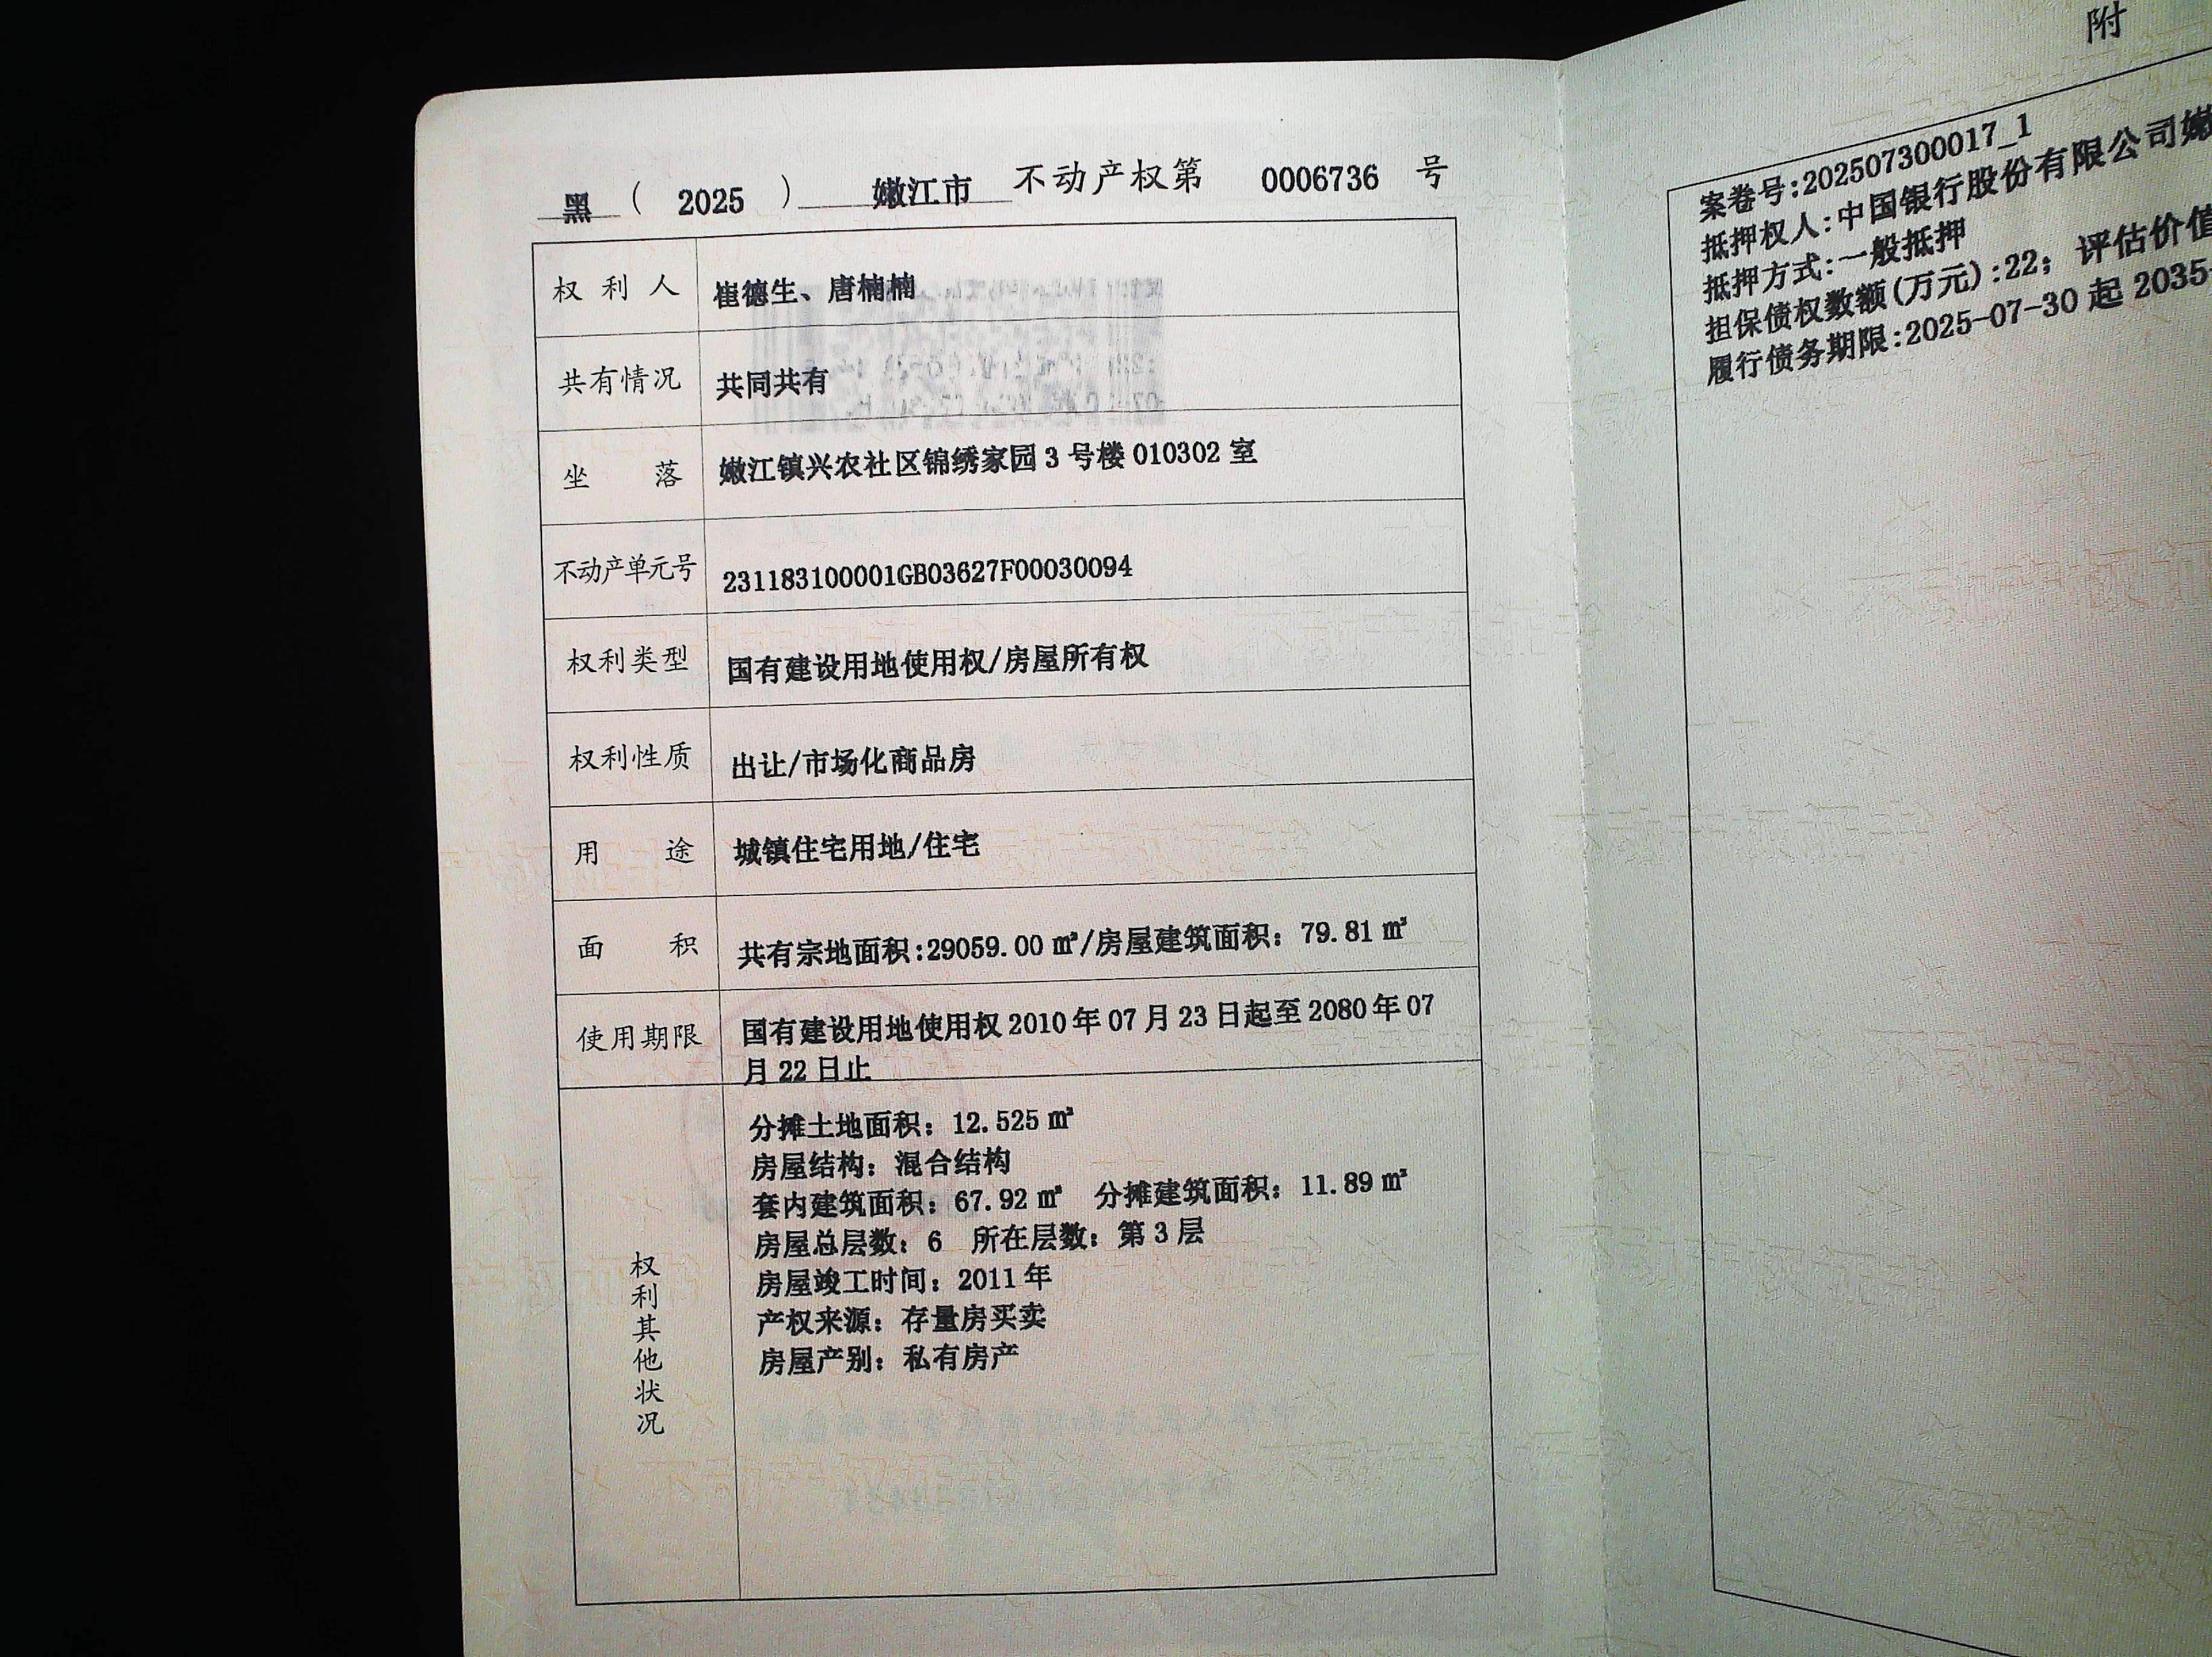 黑（2025）嫩江市不动产权第0006736号
权利人 崔德生、唐楠楠
共有情况 共同共有
坐落 嫩江镇兴农社区锦绣家园3号楼010302室
不动产单元号 231183100001GB03627F00030094
权利类型 国有建设用地使用权/房屋所有权
权利性质 出让/市场化商品房
用途 城镇住宅用地/住宅
面积 共有宗地面积:29059.00㎡/房屋建筑面积：79.81㎡
使用期限 国有建设用地使用权2010年07月23日起至2080年07
月22日止
权利其他状况
分摊土地面积：12.525㎡
房屋结构：混合结构
套内建筑面积：67.92㎡ 分摊建筑面积：11.89㎡
房屋总层数：6 所在层数：第3层
房屋竣工时间：2011年
产权来源：存量房买卖
房屋产别：私有房产
附
案卷号:202507300017_1
抵押权人:中国银行股份有限公司嫩
抵押方式:一般抵押
担保债权数额(万元):22；评估价值
履行债务期限:2025-07-30起2035-